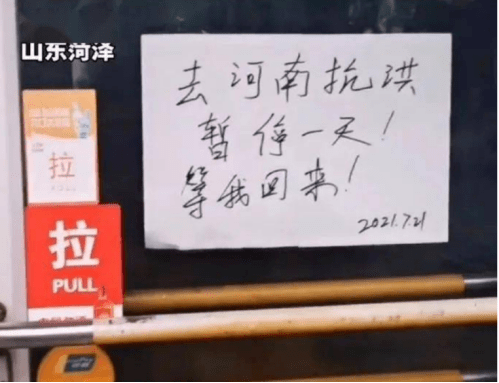 山东菏泽
去河南抗洪
暂停一天!
等我回来!
2021.7.21
拉
拉
PULL